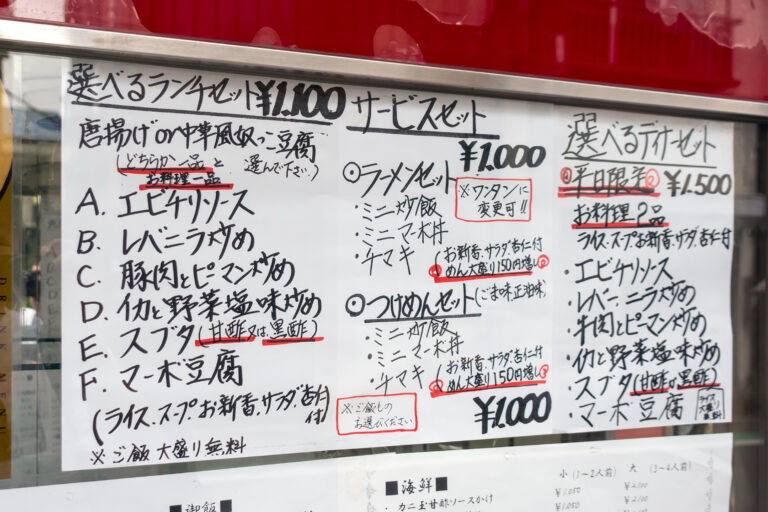 選べるランチセット ¥1.100
唐揚げor中華風奴っこ豆腐
(どちらか一品と
お料理一品
選んで下さい。)
A. エビチリソース
B. レバニラ炒め
C. 豚肉とピーマン炒め
D. イカと野菜塩味炒め
E. スブタ(甘酢又は黒酢)
F. マーボ豆腐
(ライス.スープお新香.サラダ.杏仁付)
※ご飯 大盛り無料
サービスセット
¥1.000
◎ラーメンセット
※ワンタンに
変更可!!
・ミニ炒飯
・ミニマーボ丼
・チマキ
(お新香.サラダ.杏仁付
めん大盛り150円増し)
◎つけめんセット(ごま味正油味)
・ミニ炒飯
・ミニマーボ丼
・チマキ
(お新香.サラダ.杏仁付
めん大盛り150円増し)
※ご飯もの
お選びください
¥1.000
選べるディナーセット
平日限定 ¥1.500
お料理2品
ライス.スープお新香.サラダ.杏仁付
・エビチリソース
・レバーニラ炒め
・牛肉とピーマン炒め
・イカと野菜塩味炒め
・スブタ(甘酢or黒酢)
・マーボ豆腐
ライス
大盛り
無料
■御飯
■海鮮
小(1~2人前) 大(3~4人前)
・カニ玉甘酢ソースかけ ¥1.050 ¥2.100
¥1.050 ¥2.100
DRINK MENU